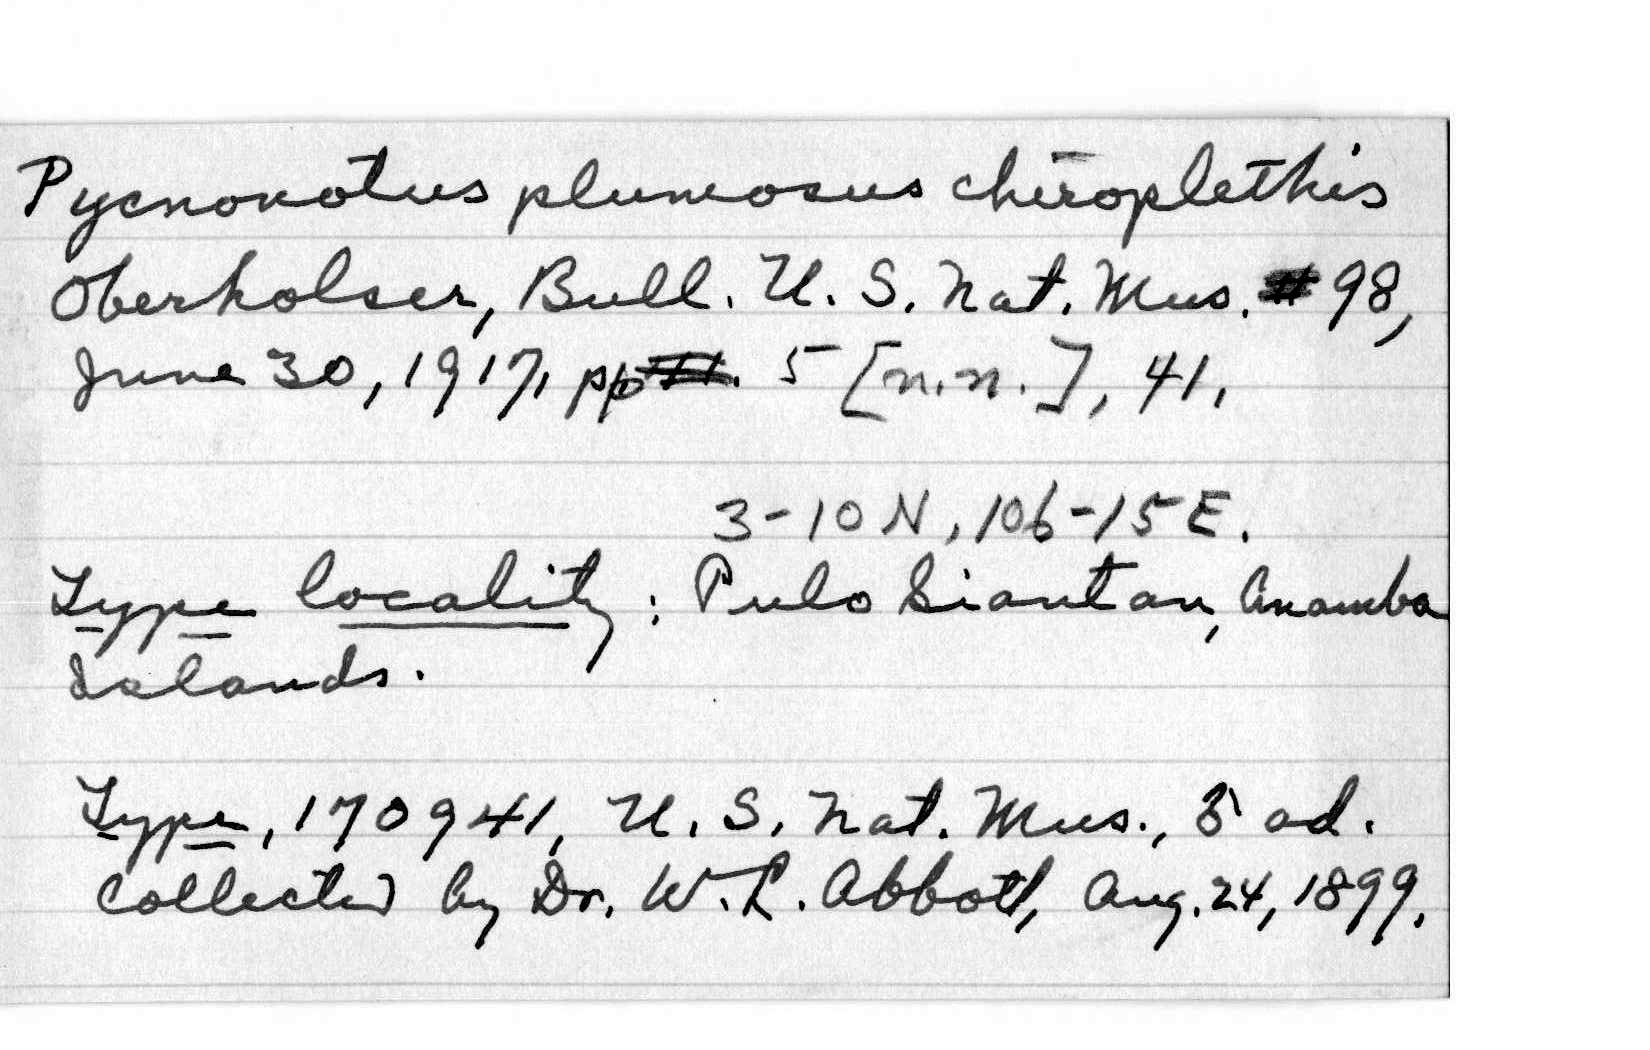 Pycnonotus plumosus chiroplethis
Oberholser, Bull. U. S. Nat. Mus. 98,
June 30, 1917, pp. 5 [n.n.], 41.
3-10 N, 106-15 E.
Type locality: Pulo Siantan, Anamba
Islands.
Type, 170941, U. S. Nat. Mus., ♂ ad.
Collected by Dr. W. L. Abbott, Aug. 24, 1899.